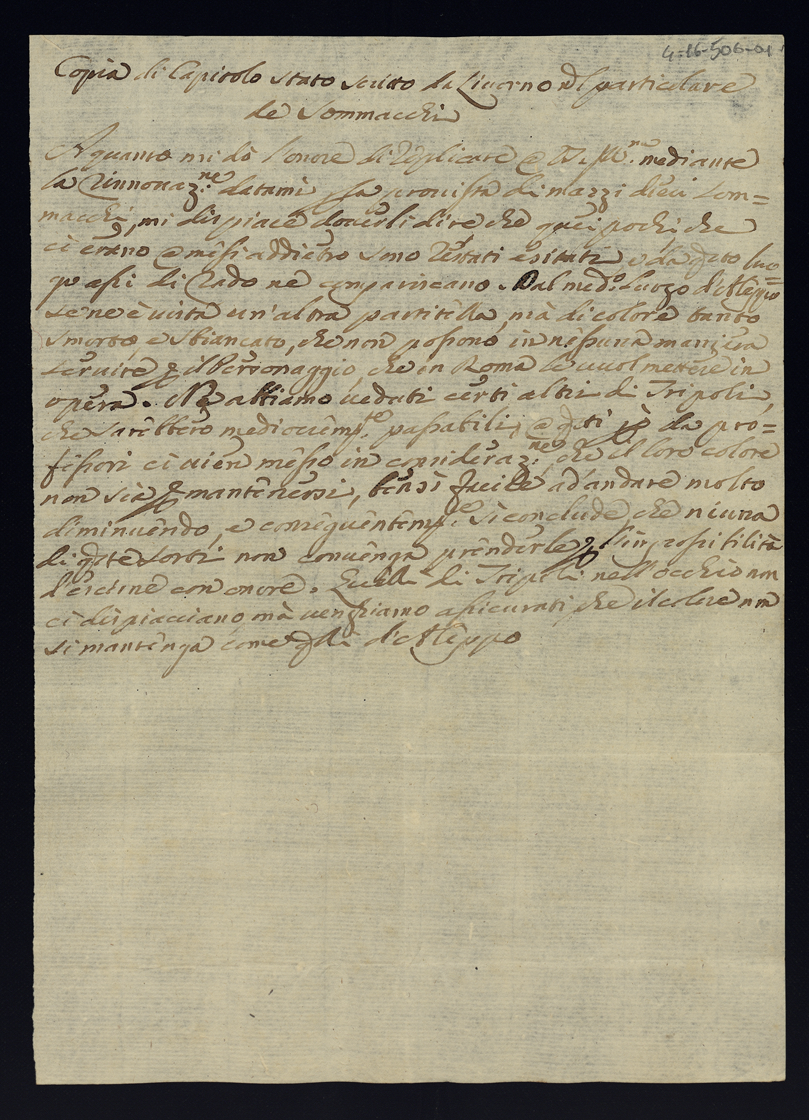 4-16-506-01
Copia di Capitolo stato scritto da Livorno nel particolare
de Sommacchi
A quanto mi dò l'onore di replicare a V. S. Ill.ma mediante
la rinnovaz.ne datami p la provista di mazzi dieci Som=
macchi, mi dispiace doverli dire che quei pochi che
ci erano a mesi addietro sono restati esitati, e da qsto luo=
go assi di rado ne compariscano. Dal med.o Luogo d'Aleppo
se ne è vista un'altra partitella, mà di colore tanto
smorto, e sbiancato, che non possono in nessuna maniera
servire p il Personaggio, che in Roma le vuol mettere in
opera. Ne abbiamo vedati certi altri di Tripoli,
che sarebbero mediocremte passabili, a qsti pò da pro=
fessori ci vien messo in consideraz.ne, che il loro colore
non sia p mantenersi, bensì facile ad'andare molto
diminuendo, e conseguentemte si conclude che niuna
di qste sorti non convenga prenderle p l'impossibilità
d'escirne con onore. Quelli di Tripoli nell'occhio non
ci dispiacciano mà venghiamo assicurati, che il colore non
si mantenga come qlli d'Aleppo